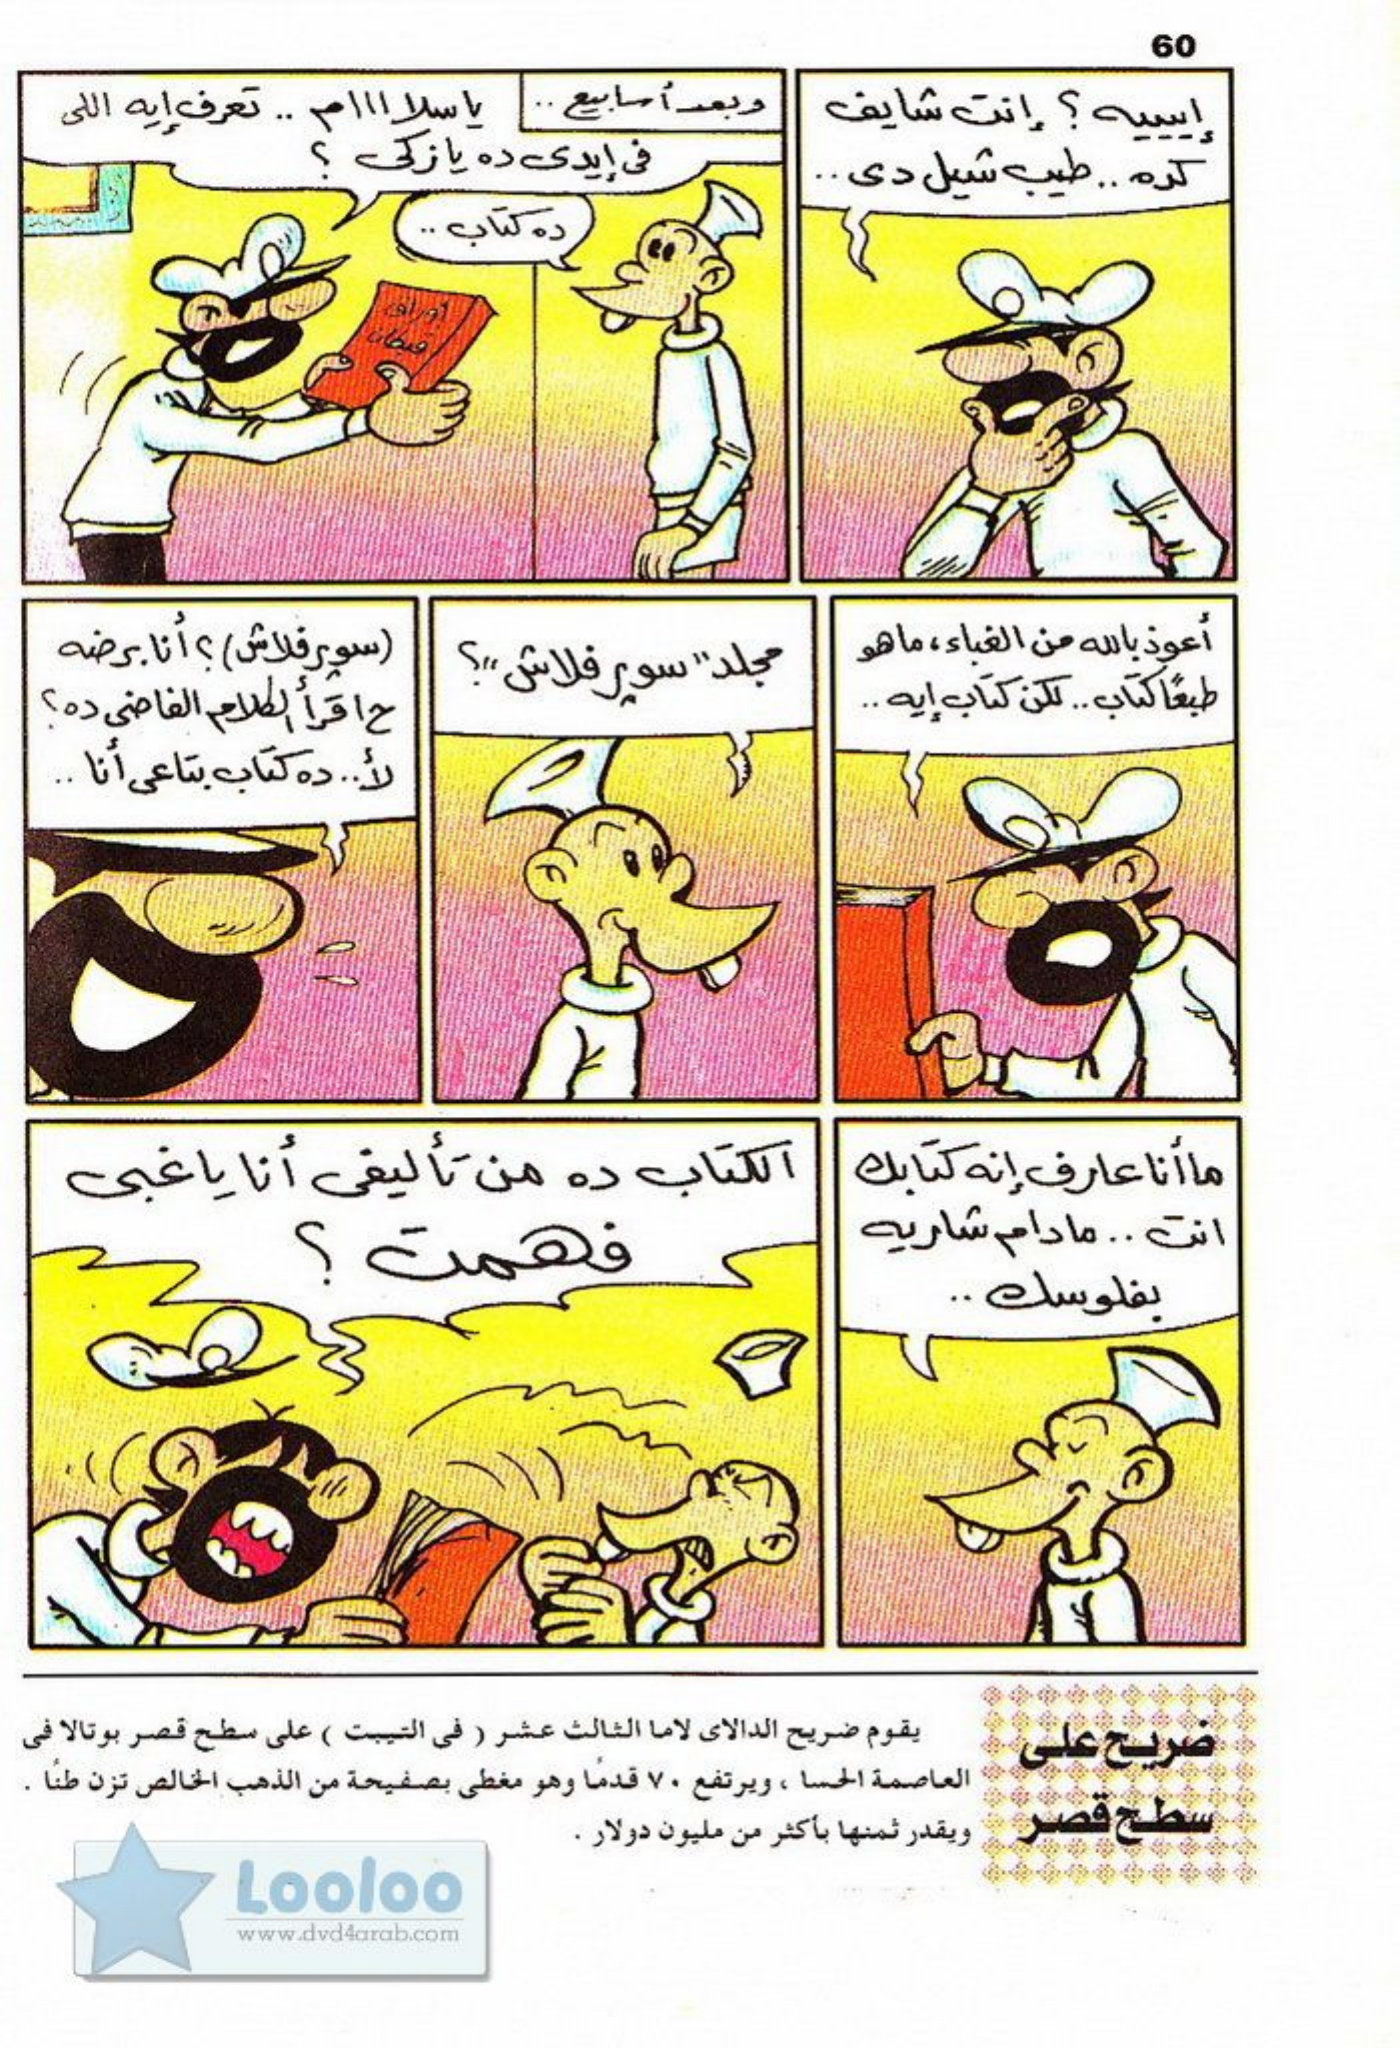 60
إيييه ؟ إنت شايف
كده .. طيب شيل دى ..
وبعد أسابيع ..
ياسلااااام .. تعرف إيه اللى
فى إيدى ده يا زكى ؟
ده كتاب ..
أوراق
قبطان
أعوذ بالله من الغباء ، ما هو
طبعًا كتاب .. لكن كتاب إيه ..
مجلد "سوپر فلاش" ؟
(سوپر فلاش) ؟ أنا برضه
ح اقرأ الكلام الفاضى ده ؟
لأ .. ده كتاب بتاعى أنا ..
ما أنا عارف إنه كتابك
انت .. مادام شاريه
بفلوسك ..
الكتاب ده من تأليفى أنا يا غبى
فهمت ؟
ضريح على
سطح قصر
يقوم ضريح الدالاى لاما الثالث عشر ( فى التيبت ) على سطح قصر بوتالا فى
العاصمة الحسا ، ويرتفع ٧٠ قدمًا وهو مغطى بصفيحة من الذهب الخالص تزن طنًا .
ويقدر ثمنها بأكثر من مليون دولار .
Looloo
www.dvd4arab.com